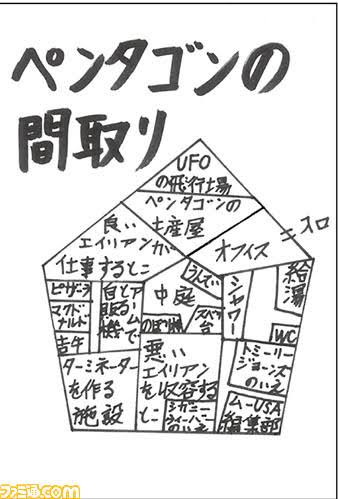 ペンタゴンの
間取り
UFO
の飛行場
ペンタゴンの
土産屋
良い
エイリアンが
仕事するとこ
オフィス
ニスロ
ピザーラ
マクド
ナルド
吉牛
アームで
とる
自販機
中庭
うんてい
すべり
台
のぼり棒
シャワー
給湯
WC
ターミネーター
を作る
施設
悪い
エイリアン
を収容する
とこ
シガニー
ウィーバー
のいえ
トミーリー
ジョーンズ
のいえ
ムーUSA
編集部
ファミ通.com